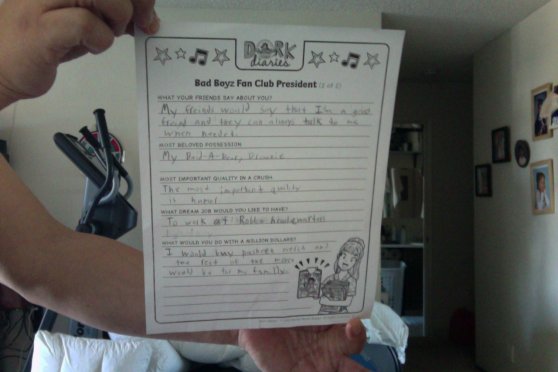 DORK
diaries
Bad Boyz Fan Club President (1 of 2)
WHAT YOUR FRIENDS SAY ABOUT YOU?
My friends would say that I'm a good
friend and they can always talk to me
when needed.
MOST BELOVED POSSESSION
My
MOST IMPORTANT QUALITY IN A CRUSH
The most important quality
is humor
WHAT DREAM JOB WOULD YOU LIKE TO HAVE?
To work at Roblox headquarters
WHAT WOULD YOU DO WITH A MILLION DOLLARS?
I would buy merch and
the rest of the money
would be for my family.